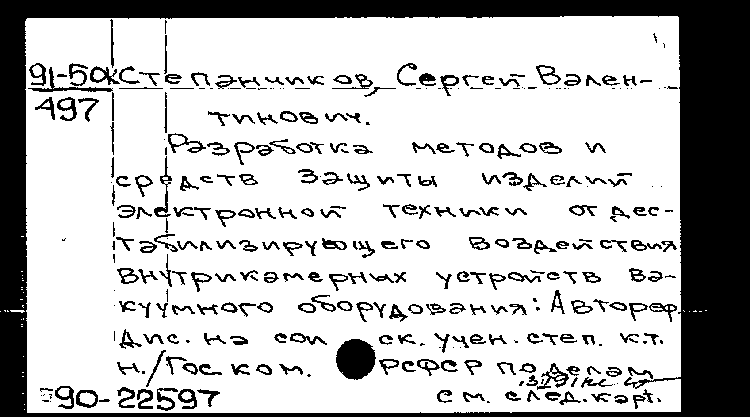 91-50к Степанчиков, Сергей Вален-
497 тинович.
Разработка методов и
средств защиты изделий
электронной техники от дес-
табилизирующего воздействия
внутрикамерных устройств ва-
куумного оборудования: Автореф.
дис. на соп ск. учен. степ. к.т.
н./Гос ком. РСФСР по делам
90-22597 см. след. карт.